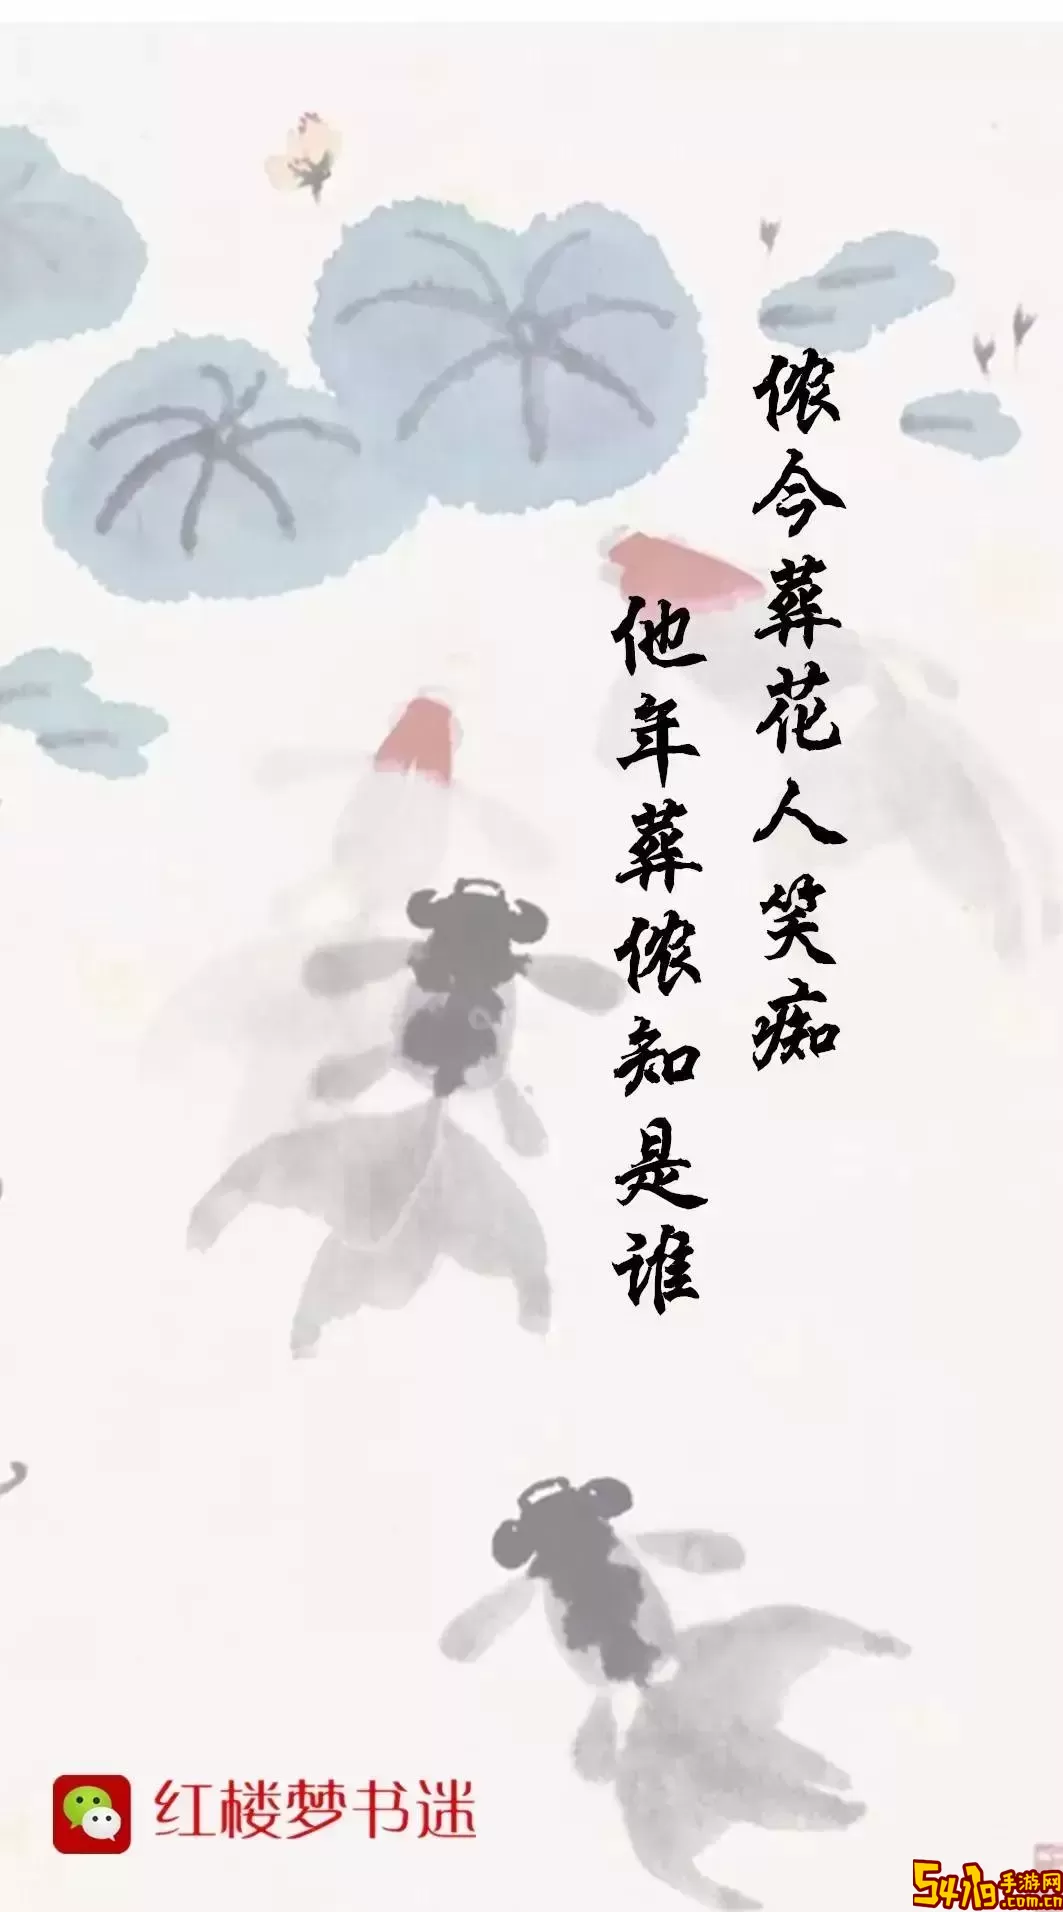 侬今葬花人笑痴
他年葬侬知是谁
红楼梦书迷
5419手游网
.com.cn